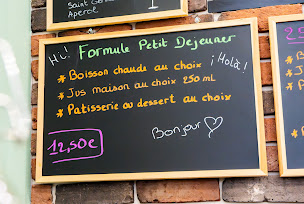 Saint Ge
Aperol
1
Hi! Formule Petit Dejeuner
¡Holà!
* Boisson chaude au choix
* Jus maison au choix 250 mL
* Patisserie ou dessert au choix
12,50€
Bonjour ♡